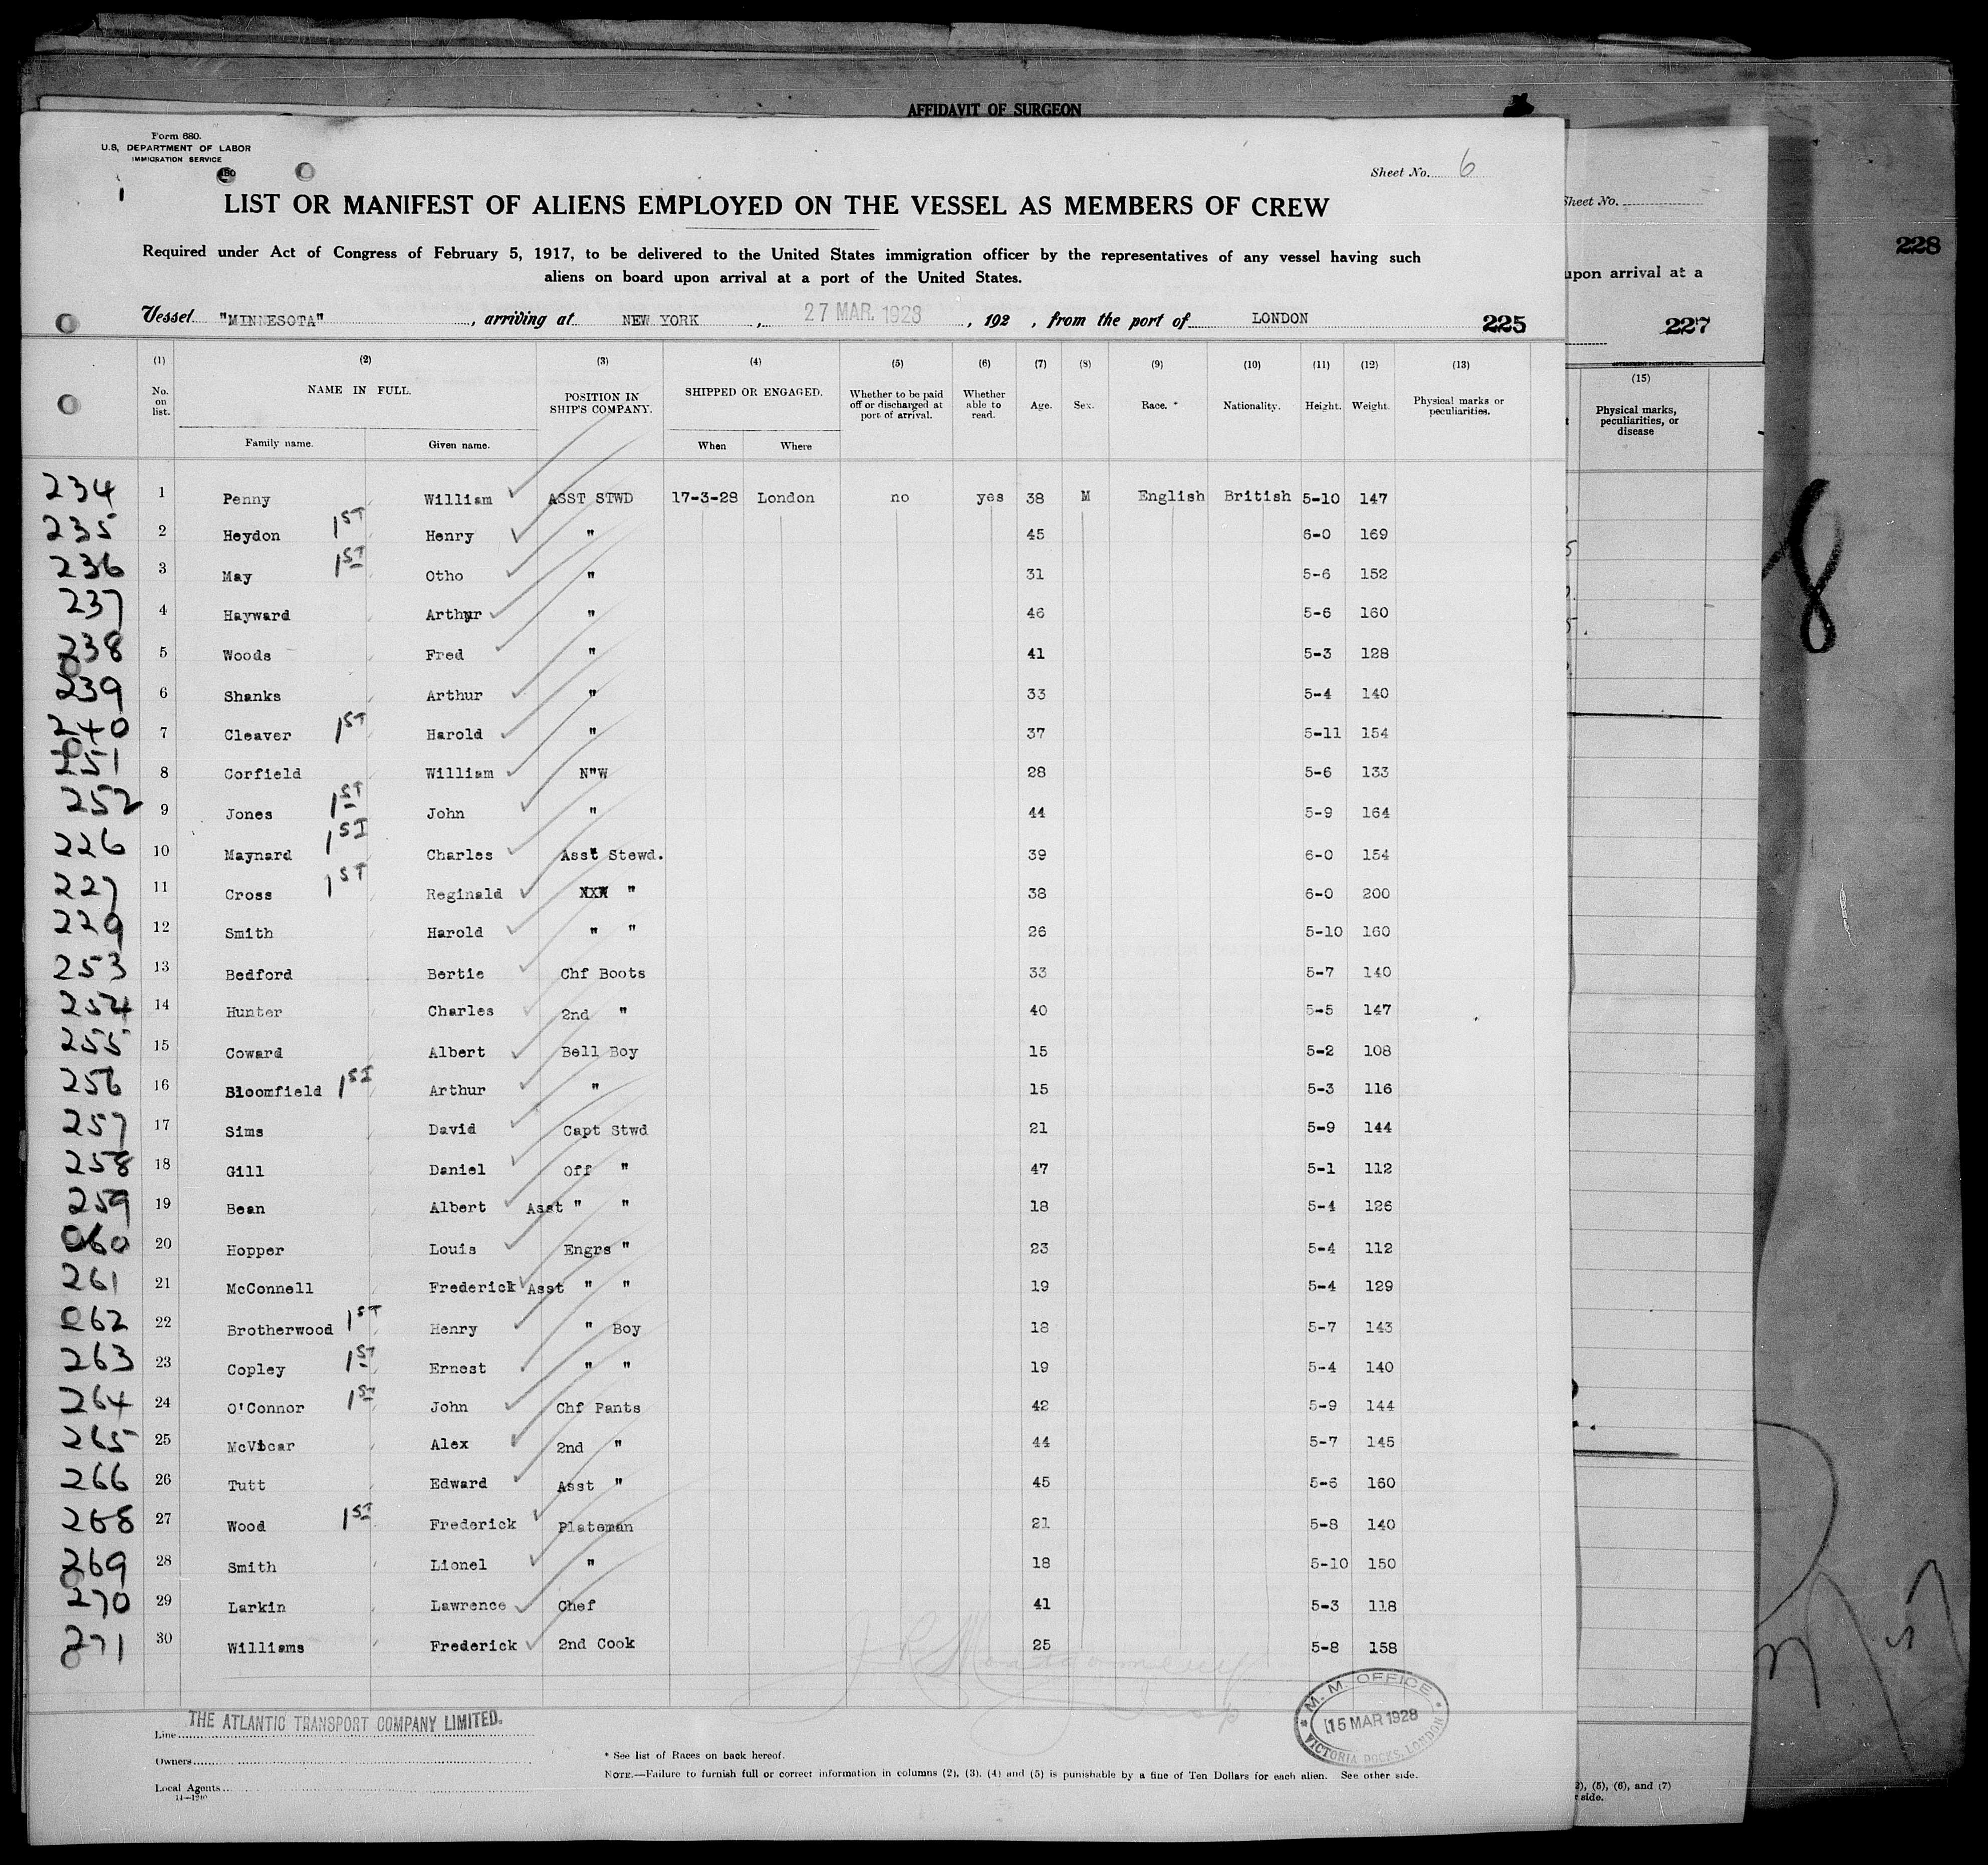 AFFIDAVIT OF SURGEON
Form 680.
U.S. DEPARTMENT OF LABOR
IMMIGRATION SERVICE
Sheet No. 6
LIST OR MANIFEST OF ALIENS EMPLOYED ON THE VESSEL AS MEMBERS OF CREW
Required under Act of Congress of February 5, 1917, to be delivered to the United States immigration officer by the representatives of any vessel having such
aliens on board upon arrival at a port of the United States.
Vessel "MINNESOTA", arriving at NEW YORK, 27 MAR. 1928, 192 , from the port of LONDON 225
(1) (2) (3) (4) (5) (6) (7) (8) (9) (10) (11) (12) (13)
No. on list. NAME IN FULL. POSITION IN SHIP'S COMPANY. SHIPPED OR ENGAGED. Whether to be paid off or discharged at port of arrival. Whether able to read. Age. Sex. Race. * Nationality. Height. Weight. Physical marks or peculiarities.
Family name. Given name. When Where
234 1 Penny William ASST STWD 17-3-28 London no yes 38 M English British 5-10 147
235 2 Heydon 1ST Henry " 45 6-0 169
236 3 May 1ST Otho " 31 5-6 152
237 4 Hayward Arthur " 46 5-6 160
238 5 Woods Fred " 41 5-3 128
239 6 Shanks Arthur " 33 5-4 140
240 7 Cleaver 1ST Harold " 37 5-11 154
251 8 Corfield William N"W 28 5-6 133
252 9 Jones 1ST John " 44 5-9 164
226 10 Maynard 1ST Charles Asst Stewd. 39 6-0 154
227 11 Cross 1ST Reginald XXX " 38 6-0 200
229 12 Smith Harold " " 26 5-10 160
253 13 Bedford Bertie Chf Boots 33 5-7 140
254 14 Hunter Charles 2nd " 40 5-5 147
255 15 Coward Albert Bell Boy 15 5-2 108
256 16 Bloomfield 1ST Arthur " 15 5-3 116
257 17 Sims David Capt Stwd 21 5-9 144
258 18 Gill Daniel Off " 47 5-1 112
259 19 Bean Albert Asst " " 18 5-4 126
260 20 Hopper Louis Engrs " 23 5-4 112
261 21 McConnell Frederick Asst " " 19 5-4 129
262 22 Brotherwood 1ST Henry " Boy 18 5-7 143
263 23 Copley 1ST Ernest " " 19 5-4 140
264 24 O'Connor 1ST John Chf Pants 42 5-9 144
265 25 McVicar Alex 2nd " 44 5-7 145
266 26 Tutt Edward Asst " 45 5-6 160
268 27 Wood 1ST Frederick Plateman 21 5-8 140
269 28 Smith Lionel " 18 5-10 150
270 29 Larkin Lawrence Chef 41 5-3 118
271 30 Williams Frederick 2nd Cook 25 5-8 158
M. M. OFFICE
15 MAR 1928
VICTORIA DOCKS, LONDON
Line THE ATLANTIC TRANSPORT COMPANY LIMITED.
Owners
Local Agents
14—1240
* See list of Races on back hereof.
NOTE.—Failure to furnish full or correct information in columns (2), (3), (4) and (5) is punishable by a fine of Ten Dollars for each alien. See other side.
Sheet No.
228
upon arrival at a
227
(15)
Physical marks, peculiarities, or disease
8
(5), (6), and (7)
side.